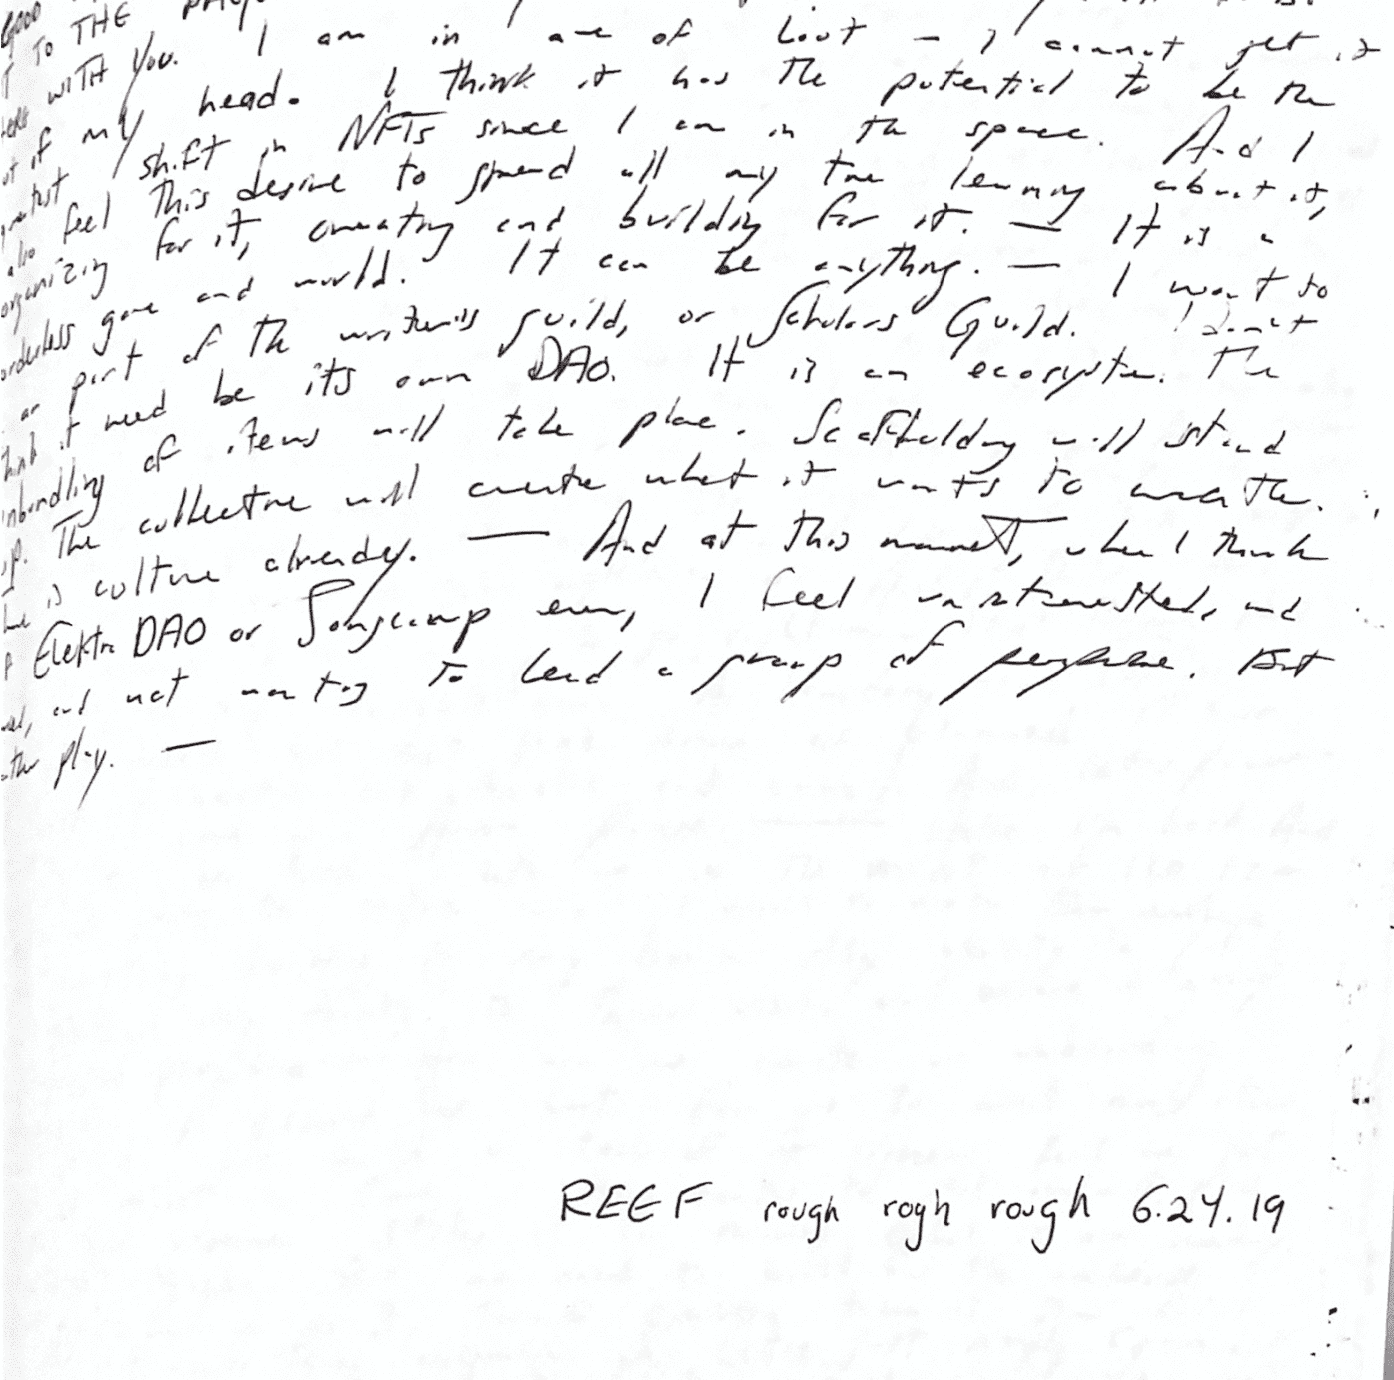 GOOD
T TO THE
WITH YOU. I am in awe of Loot – I cannot get it
out if my head. I think it has the potential to be the
greatest shift in NFTs since I am in the space. And I
also feel this desire to spend all my time learning about it,
organizing for it, creating and building for it. — It is a
orderless game and world. It can be anything. — I want to
an part of the writer's guild, or Scholars Guild. I don't
think it need be its own DAO. It is an ecosystem. The
unbundling of items will take place. Scaffolding will stand
up. The collective will create what it wants to create.
is culture already. — And at this moment, when I think
Elektra DAO or Songcamp even, I feel uninterested, and
and not wanting to lead a group of people. But
rather play. —
REEF rough rogh rough 6.24.19